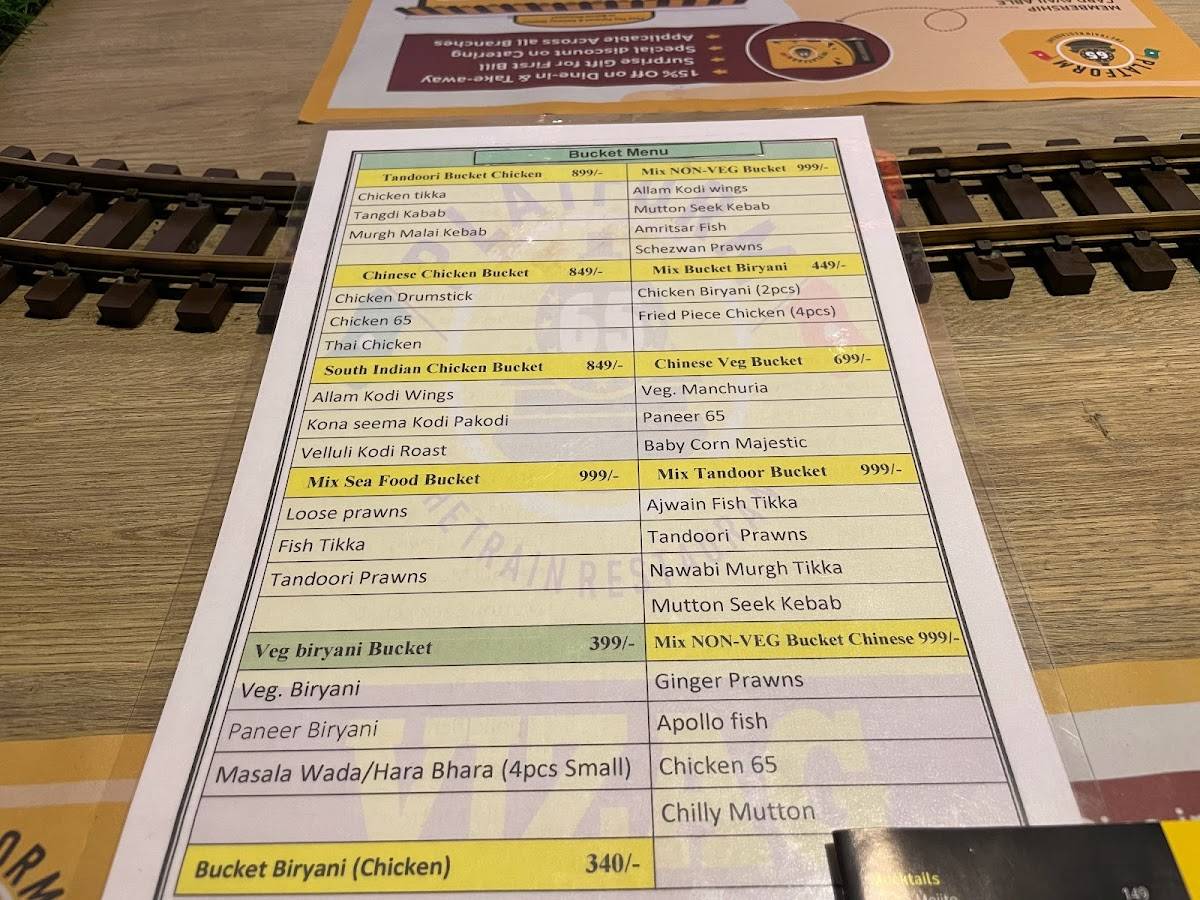 MEMBERSHIP
CARD AVAILABLE
PLATFORM
65
15% Off on Dine-in & Take-away
Surprise Gift for First Bill
Special discount on Catering
Applicable Across all Branches
Bucket Menu
Tandoori Bucket Chicken 899/-
Chicken tikka
Tangdi Kabab
Murgh Malai Kebab
Chinese Chicken Bucket 849/-
Chicken Drumstick
Chicken 65
Thai Chicken
South Indian Chicken Bucket 849/-
Allam Kodi Wings
Kona seema Kodi Pakodi
Velluli Kodi Roast
Mix Sea Food Bucket 999/-
Loose prawns
Fish Tikka
Tandoori Prawns
Veg biryani Bucket 399/-
Veg. Biryani
Paneer Biryani
Masala Wada/Hara Bhara (4pcs Small)
Bucket Biryani (Chicken) 340/-
Mix NON-VEG Bucket 999/-
Allam Kodi wings
Mutton Seek Kebab
Amritsar Fish
Schezwan Prawns
Mix Bucket Biryani 449/-
Chicken Biryani (2pcs)
Fried Piece Chicken (4pcs)
Chinese Veg Bucket 699/-
Veg. Manchuria
Paneer 65
Baby Corn Majestic
Mix Tandoor Bucket 999/-
Ajwain Fish Tikka
Tandoori Prawns
Nawabi Murgh Tikka
Mutton Seek Kebab
Mix NON-VEG Bucket Chinese 999/-
Ginger Prawns
Apollo fish
Chicken 65
Chilly Mutton
65
THE TRAIN RESTAURANT
VIZAG
149